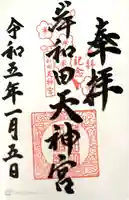 奉拝
岸和田天神宮
令和五年一月五日